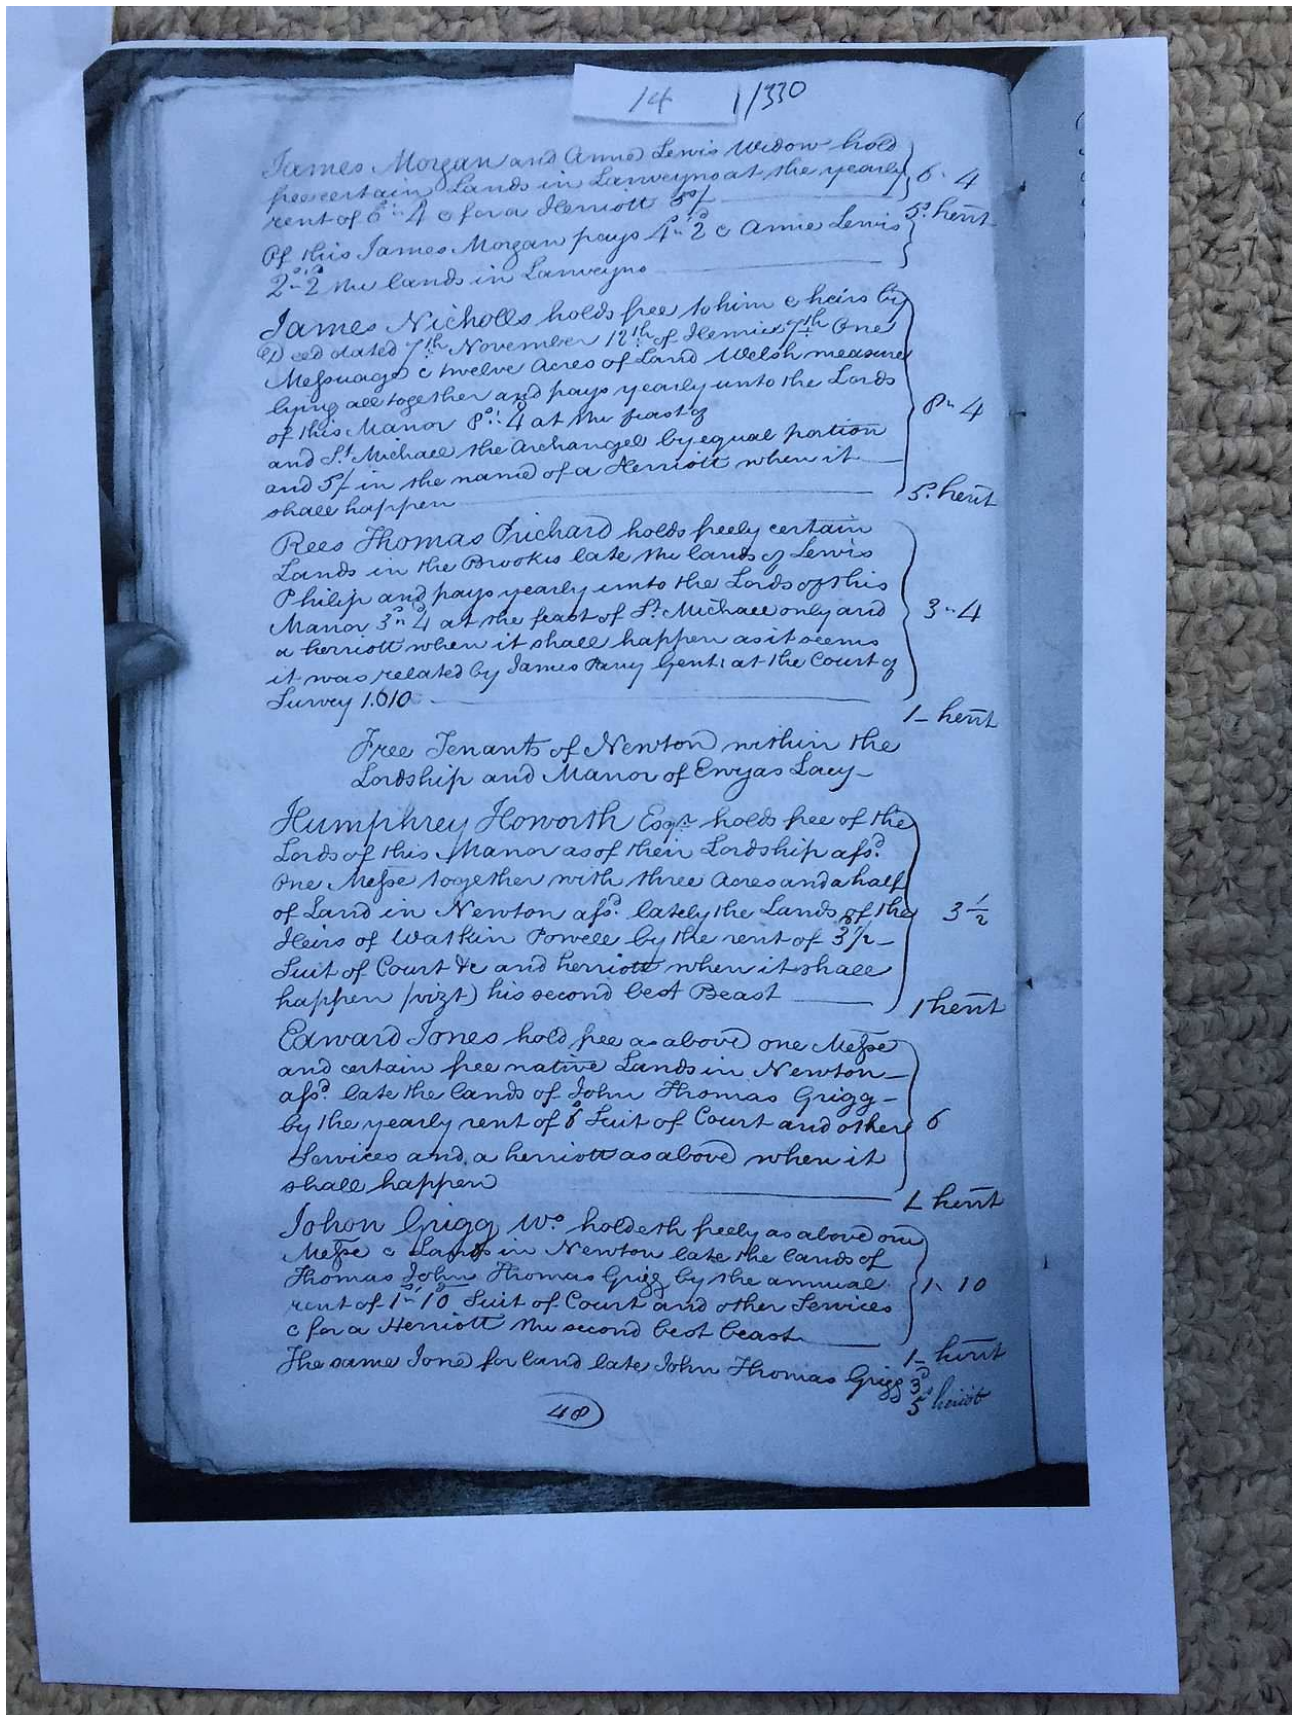 14 1/330
James Morgan and Anne Lewis Widow hold
free certain Lands in Lanveyno at the yearly 6 " 4
rent of 6s " 4d & for a Herriott 5s/
5s. herit
Of this James Morgan pays 4s " 2d & Anne Lewis
2s " 2d the lands in Lanveyno
James Nicholls holds free to him & heirs by
Deed dated 7th November 12th of Henrie 7th One
Messuage & twelve Acres of Land Welsh measure
lying all together and pays yearly unto the Lords
of this Manor 8s " 4d at the feast of 8 " 4
and St. Michael the Archangel by equal portion
and 5/ in the name of a Herriott when it
shall happen 5s. herit
Rees Thomas Prichard holds freely certain
Lands in the Brookes late the lands of Lewis
Philip and pays yearly unto the Lords of this
Manor 3s " 4d at the feast of St. Michael only and 3 " 4
a herriott when it shall happen as it seems
it was related by James Parry Gent: at the Court of
Survey 1610
1 - herit
Free Tenants of Newton within the
Lordship and Manor of Ewyas Lacy -
Humphrey Howorth Esqr. holds free of the
Lords of this Manor as of their Lordship afsd.
One Messe together with three Acres and a half
of Land in Newton afsd. lately the Lands of the 3 1/2
Heirs of Watkin Powell by the rent of 3d 1/2 -
Suit of Court &c and herriott when it shall
happen (vizt) his second best Beast 1 herit
Edward Jones hold free as above one Messe
and certain free native Lands in Newton -
afsd. late the lands of John Thomas Grigg -
by the yearly rent of 6d Suit of Court and other 6
Services and a herriott as above when it
shall happen 1 herit
Johon Grigg Wo. holdeth freely as above one
Messe & Lands in Newton late the lands of
Thomas John Thomas Grigg by the annual 1 " 10
rent of 1s " 10d Suit of Court and other Services
& for a Herriott the second best beast
1 - herit
The same Jone for land late John Thomas Grigg 3d
5s heriot
48